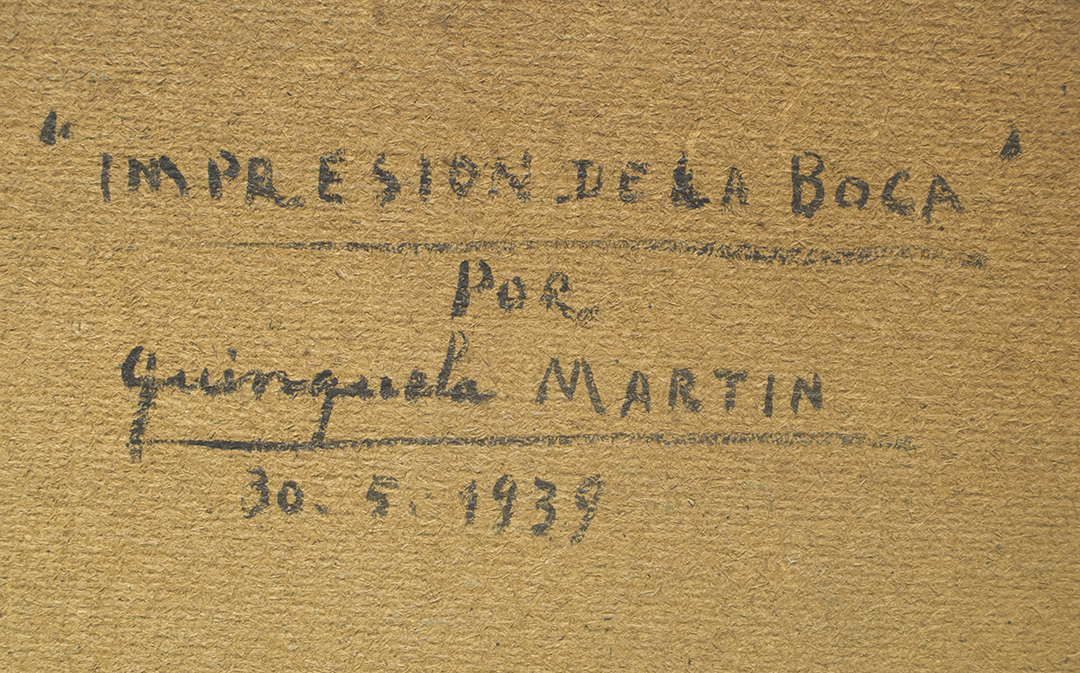 "IMPRESION DE LA BOCA"
POR
quinquela MARTIN
30. 5. 1939